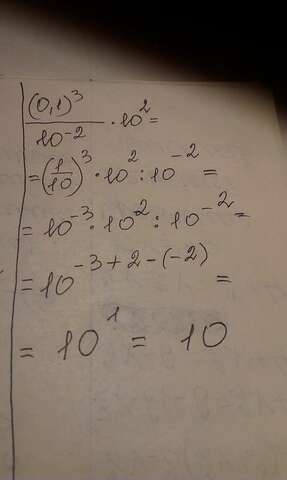 (0,1)³
―――― · 10² =
10⁻²
= (1/10)³ · 10² : 10⁻² =
= 10⁻³ · 10² : 10⁻² =
= 10⁻³⁺²⁻⁽⁻²⁾ =
= 10¹ = 10